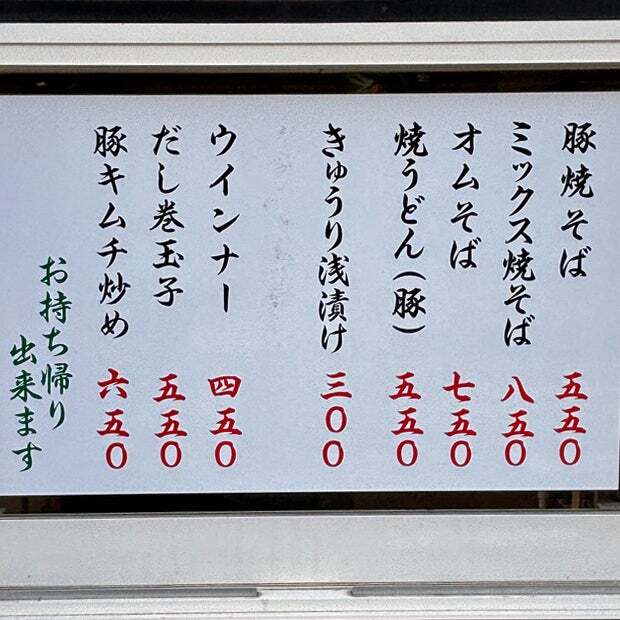 豚焼そば 五五〇
ミックス焼そば 八五〇
オムそば 七五〇
焼うどん(豚) 五五〇
きゅうり浅漬け 三〇〇
ウインナー 四五〇
だし巻玉子 五五〇
豚キムチ炒め 六五〇
お持ち帰り
出来ます